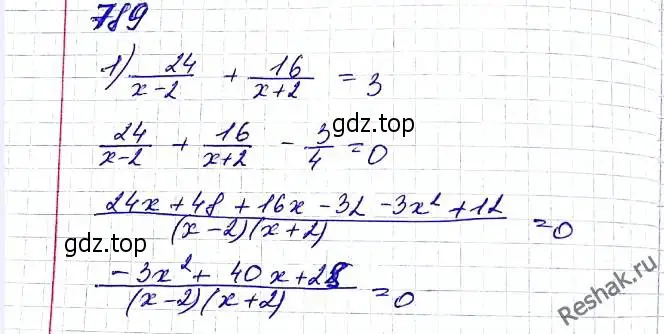 789
1) 24/(x-2) + 16/(x+2) = 3
24/(x-2) + 16/(x+2) - 3/4 = 0
гдз.top
(24x + 48 + 16x - 32 - 3x² + 12)/((x-2)(x+2)) = 0
гдз.top
(-3x² + 40x + 28)/((x-2)(x+2)) = 0
Reshak.ru